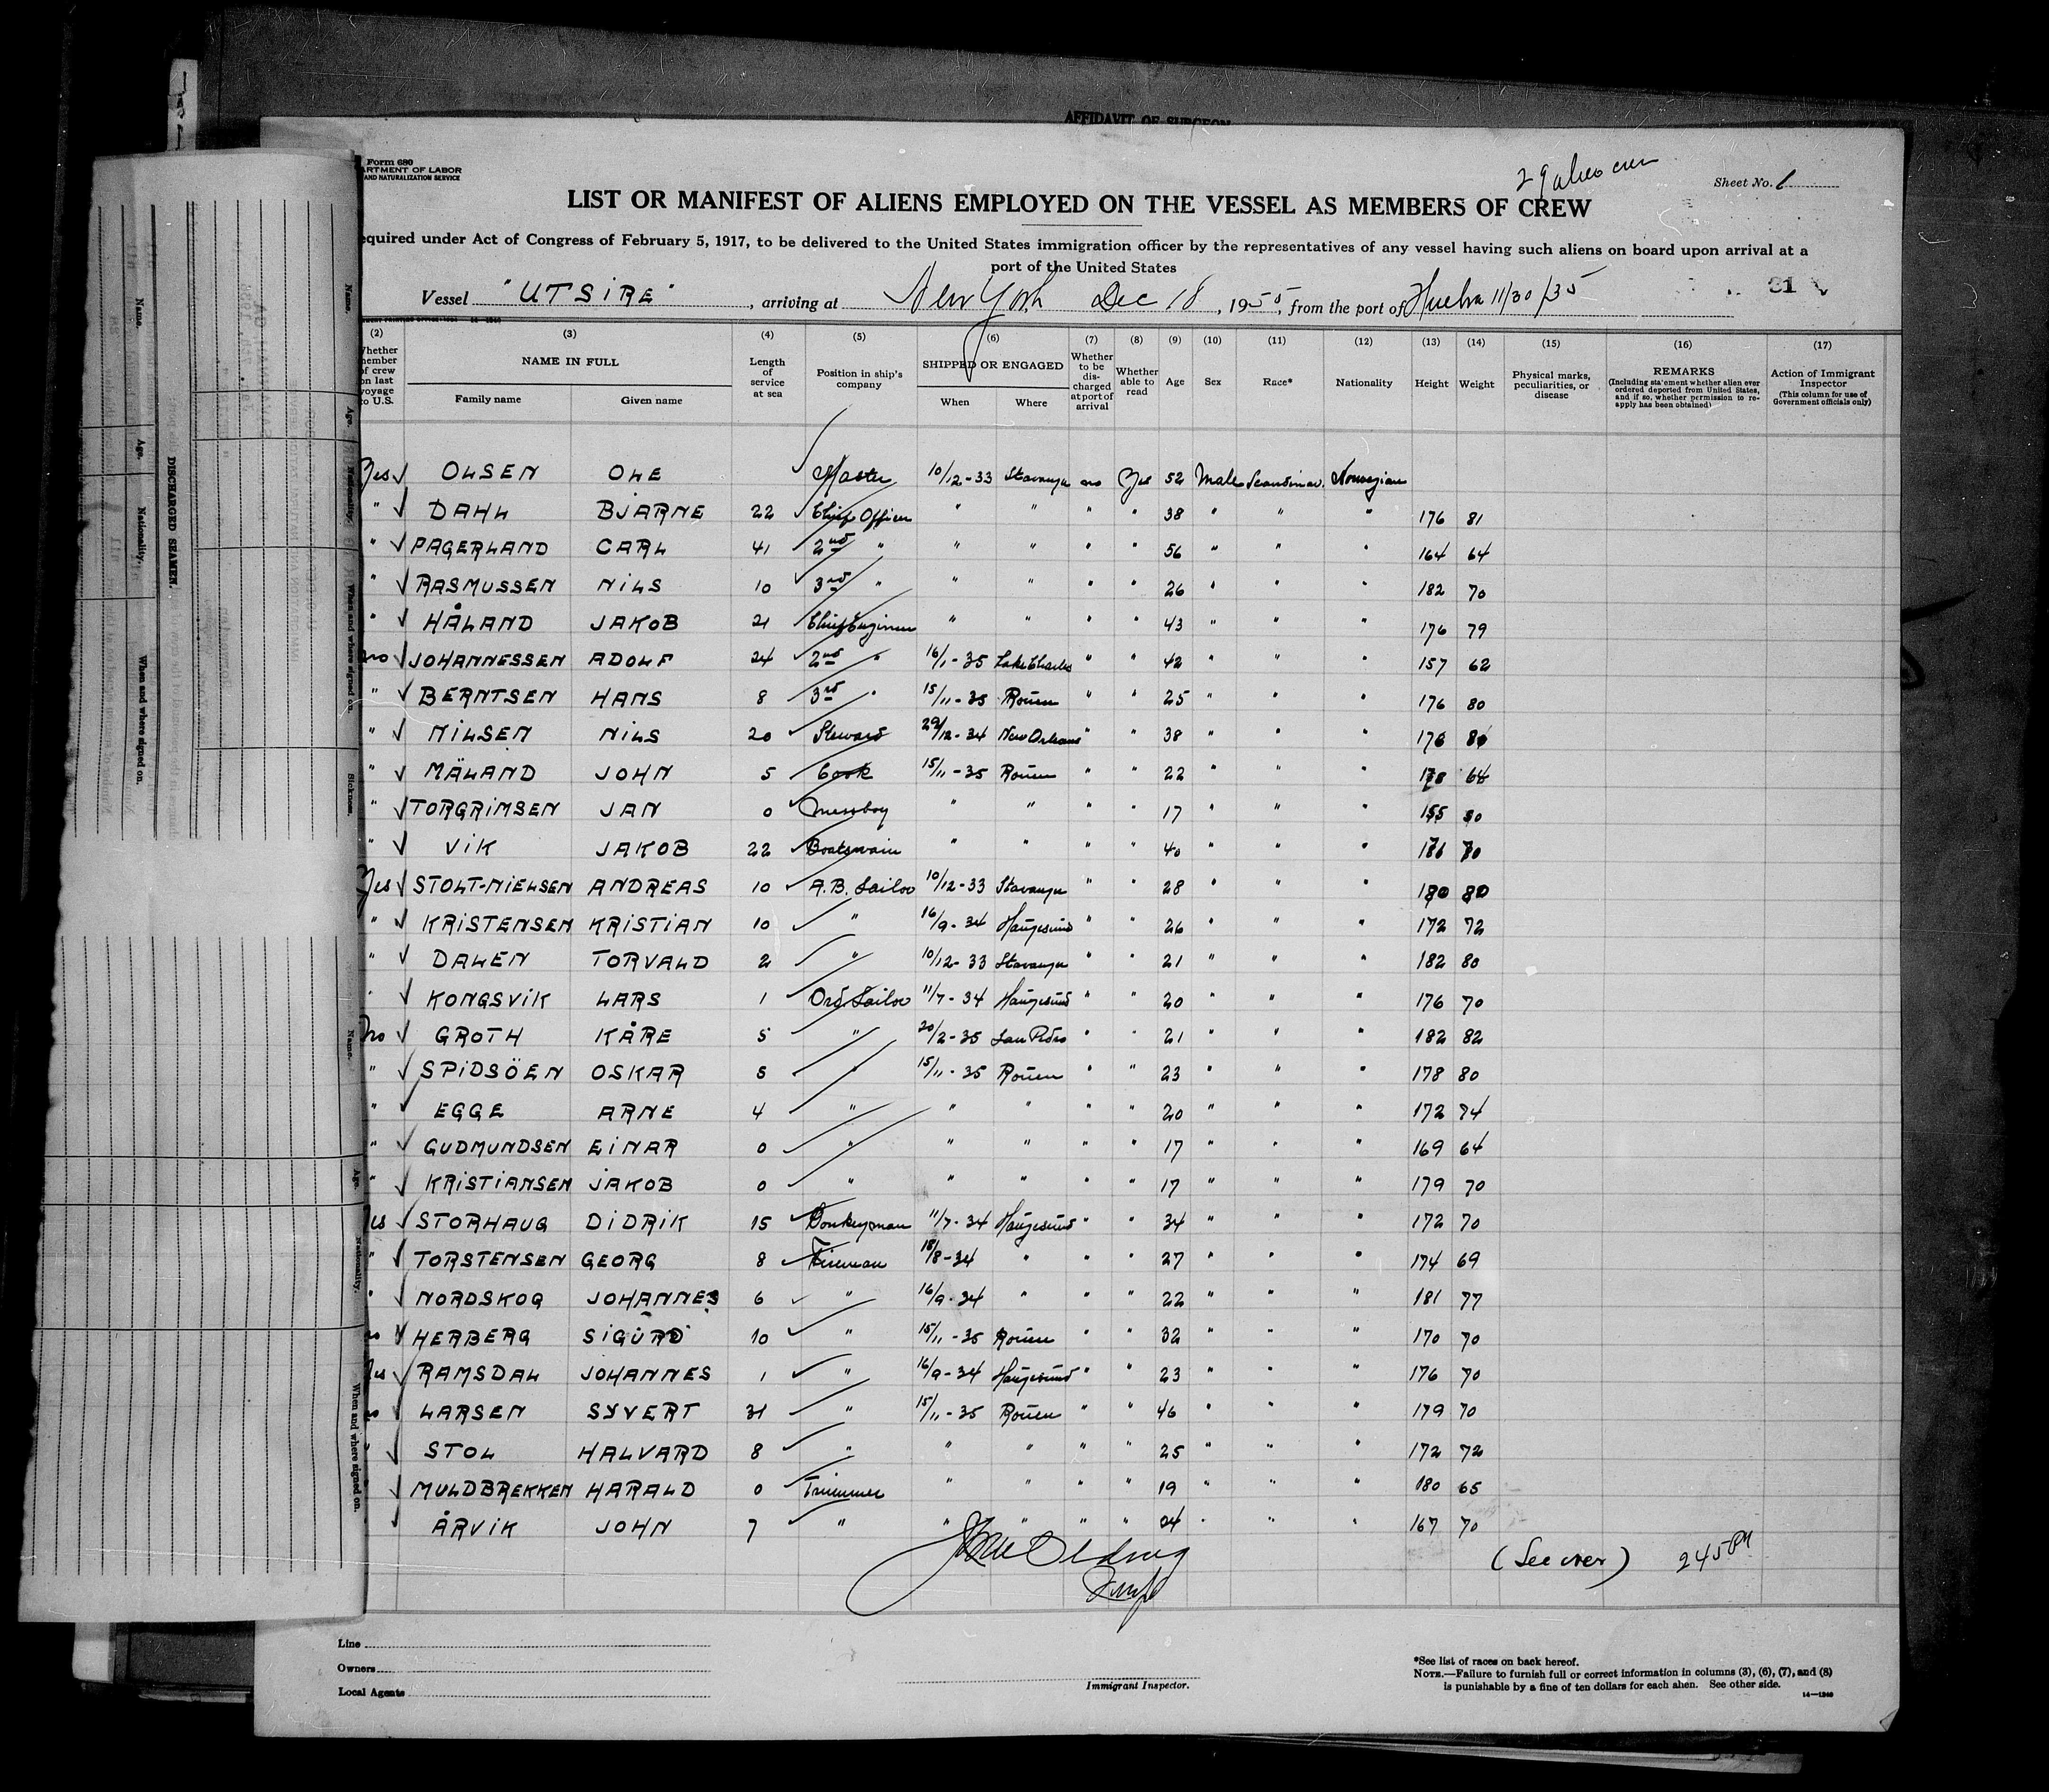 AFFIDAVIT OF SURGEON
Form 680
ARTMENT OF LABOR
AND NATURALIZATION SERVICE
29 alien crew
Sheet No. 1
LIST OR MANIFEST OF ALIENS EMPLOYED ON THE VESSEL AS MEMBERS OF CREW
equired under Act of Congress of February 5, 1917, to be delivered to the United States immigration officer by the representatives of any vessel having such aliens on board upon arrival at a
port of the United States
Vessel "UTSIRE", arriving at New York Dec 18, 1935, from the port of Huelva 11/30/35
31
(2) (3) (4) (5) (6) (7) (8) (9) (10) (11) (12) (13) (14) (15) (16) (17)
Whether member of crew on last voyage to U.S. NAME IN FULL Family name Given name Length of service at sea Position in ship's company SHIPPED OR ENGAGED When Where Whether to be discharged at port of arrival Whether able to read Age Sex Race* Nationality Height Weight Physical marks, peculiarities, or disease REMARKS (Including statement whether alien ever ordered deported from United States, and if so, whether permission to reapply has been obtained) Action of Immigrant Inspector (This column for use of Government officials only)
Yes √ OLSEN OLE Master 10/12-33 Stavanger no Yes 52 Male Scandinav. Norwegian
" √ DAHL BJARNE 22 Chief Officer " " " " 38 " " " 176 81
" √ PAGERLAND CARL 41 2nd " " " " " 56 " " " 164 64
" √ RASMUSSEN NILS 10 3rd " " " " " 26 " " " 182 70
" √ HÅLAND JAKOB 21 Chief Engineer " " " " 43 " " " 176 79
no √ JOHANNESSEN ADOLF 24 2nd " 16/1-35 Lake Charles " " 42 " " " 157 62
" √ BERNTSEN HANS 8 3rd " 15/11-35 Rouen " " 25 " " " 176 80
" √ NILSEN NILS 20 Steward 29/12-34 New Orleans " " 38 " " "
" √ MÄLAND JOHN 5 Cook 15/11-35 Rouen " " 22 " " "
" √ TORGRIMSEN JAN 0 Messboy " " " " 17 " " " 155
" √ VIK JAKOB 22 Boatswain " " " " 40 " " "
Yes √ STOLT-NIELSEN ANDREAS 10 A.B. Sailor 10/12-33 Stavanger " " 28 " " " 180 80
" √ KRISTENSEN KRISTIAN 10 " 16/9-34 Haugesund " " 26 " " " 172 72
" √ DALEN TORVALD 2 " 10/12-33 Stavanger " " 21 " " " 182 80
" √ KONGSVIK LARS 1 Ord. Sailor 11/7-34 Haugesund " " 20 " " " 176 70
no √ GROTH KÅRE 5 " 20/2-35 San Pedro " " 21 " " " 182 82
" √ SPIDSÖEN OSKAR 5 " 15/11-35 Rouen " " 23 " " " 178 80
" √ EGGE ARNE 4 " " " " " 20 " " " 172 74
" √ GUDMUNDSEN EINAR 0 " " " " " 17 " " " 169 64
" √ KRISTIANSEN JAKOB 0 " " " " " 17 " " " 179 70
Yes √ STORHAUG DIDRIK 15 Donkeyman 11/7-34 Haugesund " " 34 " " " 172 70
" √ TORSTENSEN GEORG 8 Fireman 18/8-34 " " " 27 " " " 174 69
" √ NORDSKOG JOHANNES 6 " 16/9-34 " " " 22 " " " 181 77
no √ HERBERG SIGURD 10 " 15/11-35 Rouen " " 32 " " " 170 70
Yes √ RAMSDAL JOHANNES 1 " 16/9-34 Haugesund " " 23 " " " 176 70
no √ LARSEN SYVERT 31 " 15/11-35 Rouen " " 46 " " " 179 70
" √ STOL HALVARD 8 " " " " " 25 " " " 172 72
" √ MULDBREKKEN HARALD 0 Trimmer " " " " 19 " " " 180 65
√ ÅRVIK JOHN 7 " " " " " 24 " " " 167 70
(See over) 245 PM
Insp
Line
Owners
Local Agents
Immigrant Inspector.
*See list of races on back hereof.
NOTE.—Failure to furnish full or correct information in columns (3), (6), (7), and (8)
is punishable by a fine of ten dollars for each alien. See other side.
14—1240
DISCHARGED SEAMEN.
Name. Age. Nationality. When and where signed on.
Name. Age. Nationality. When and where signed on. Sickness.
Name. Age. Nationality. When and where signed on.